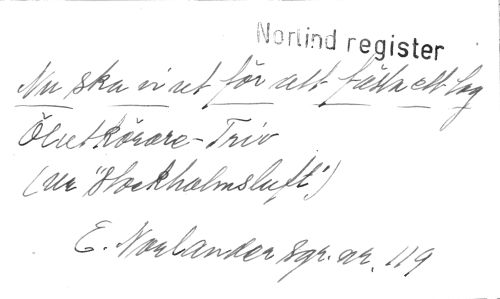 Norlind register
Nu ska vi ut för att fästa ett tag
Ölutkörare-Triv
(ur "Stockholmsluft")
E. Norlander sgr. nr. 119